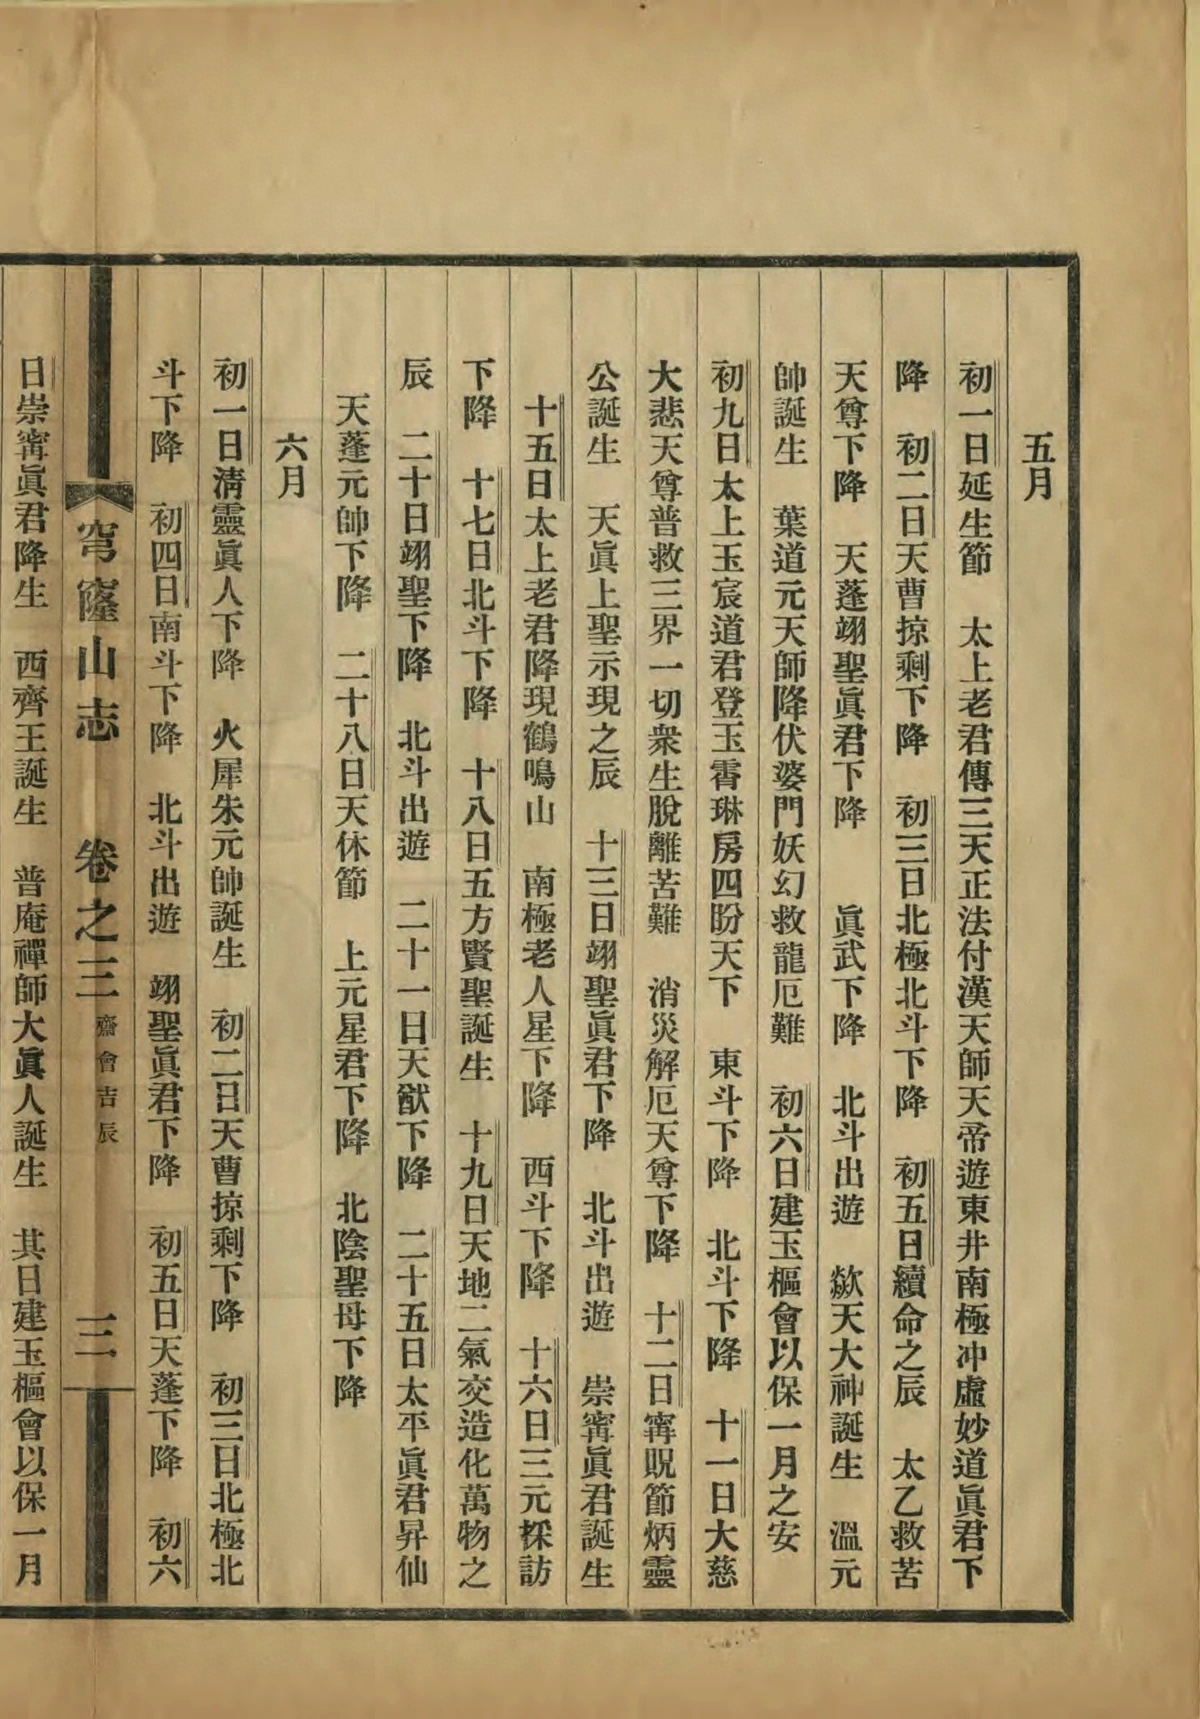 五月
初一日延生節　太上老君傳三天正法付漢天師天帝遊東井南極冲虛妙道眞君下
降　初二日天曹掠剩下降　初三日北極北斗下降　初五日續命之辰　太乙救苦
天尊下降　天蓬翊聖眞君下降　　眞武下降　北斗出遊　歘天大神誕生　溫元
帥誕生　葉道元天師降伏婆門妖幻救龍厄難　初六日建玉樞會以保一月之安
初九日太上玉宸道君登玉霄琳房四盼天下　東斗下降　北斗下降　十一日大慈
大悲天尊普救三界一切衆生脫離苦難　消災解厄天尊下降　十二日寗貺節炳靈
公誕生　天眞上聖示現之辰　十三日翊聖眞君下降　北斗出遊　崇寗眞君誕生
十五日太上老君降現鶴鳴山　南極老人星下降　西斗下降　十六日三元採訪
下降　十七日北斗下降　十八日五方賢聖誕生　十九日天地二氣交造化萬物之
辰　二十日翊聖下降　北斗出遊　二十一日天猷下降　二十五日太平眞君昇仙
天蓬元帥下降　二十八日天休節　上元星君下降　北陰聖母下降
六月
初一日淸靈眞人下降　火犀朱元帥誕生　初二日天曹掠剩下降　初三日北極北
斗下降　初四日南斗下降　北斗出遊　翊聖眞君下降　初五日天蓬下降　初六
穹窿山志　卷之三　齋會吉辰　三
日崇寗眞君降生　西齊王誕生　普庵禪師大眞人誕生　其日建玉樞會以保一月